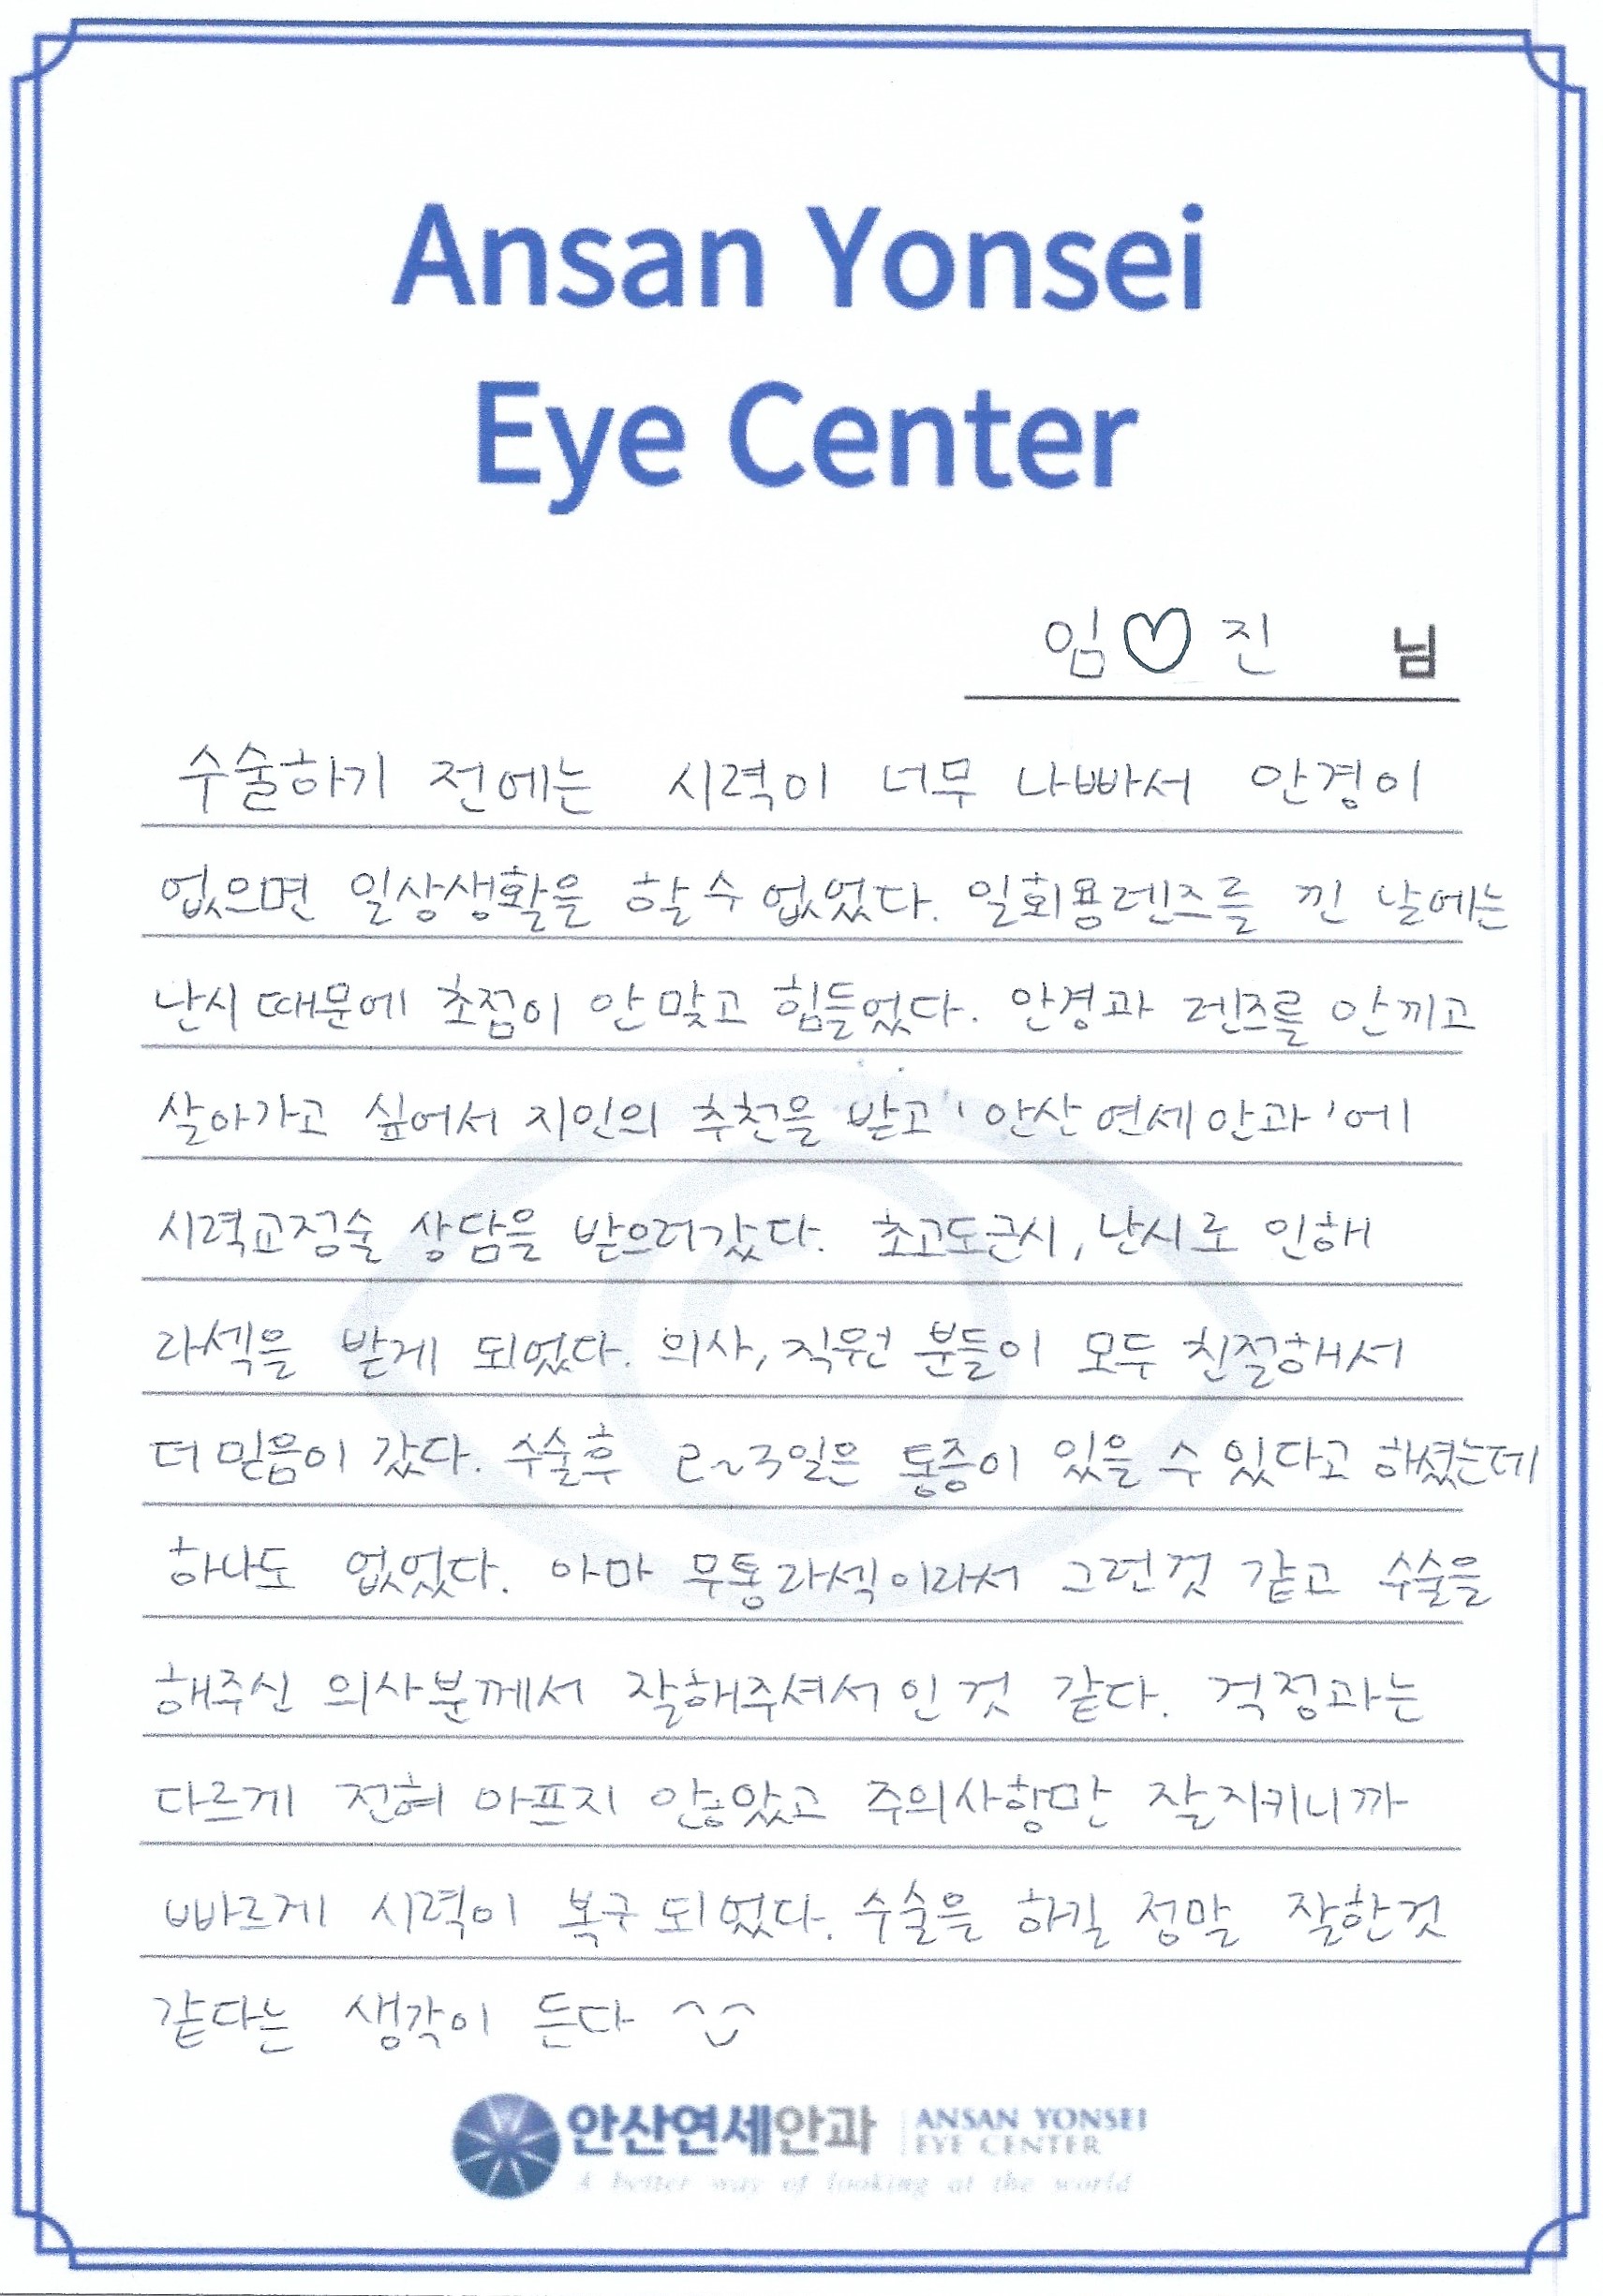 Ansan Yonsei
Eye Center
임♡진 님
수술하기 전에는 시력이 너무 나빠서 안경이
없으면 일상생활을 할 수 없었다. 일회용렌즈를 낀 날에는
난시 때문에 초점이 안 맞고 힘들었다. 안경과 렌즈를 안끼고
살아가고 싶어서 지인의 추천을 받고 '안산연세안과'에
시력교정술 상담을 받으러갔다. 초고도근시, 난시로 인해
라섹을 받게 되었다. 의사, 직원 분들이 모두 친절해서
더 믿음이 갔다. 수술후 2~3일은 통증이 있을 수 있다고 하셨는데
하나도 없었다. 아마 무통라섹이라서 그런것 같고 수술을
해주신 의사분께서 잘해주셔서인 것 같다. 걱정과는
다르게 전혀 아프지 않았고 주의사항만 잘지키니까
빠르게 시력이 복구되었다. 수술을 하길 정말 잘한것
같다는 생각이 든다 ^^
안산연세안과 ANSAN YONSEI
EYE CENTER
A better way of looking at the world